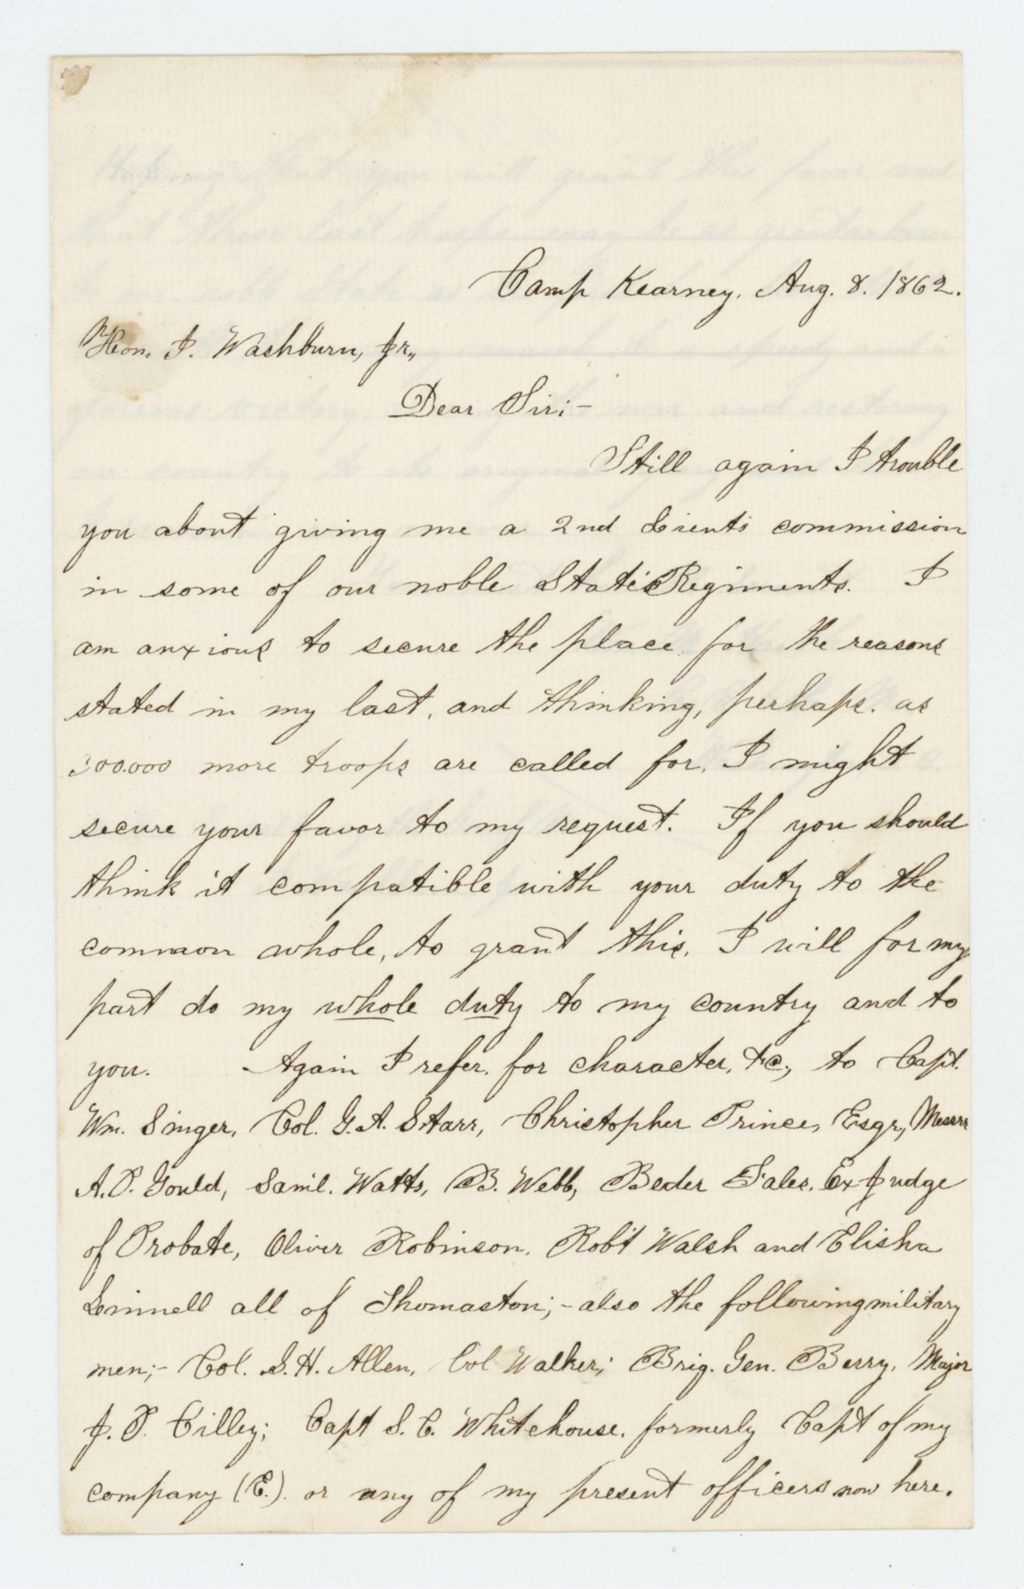 Camp Kearney, Aug. 8. 1862.
Hon. I. Washburn, Jr.,
Dear Sir:-
Still again I trouble
you about giving me a 2nd Lient's commission
in some of our noble State's Regiments. I
am anxious to secure the place for the reasons
stated in my last, and thinking, perhaps, as
300.000 more troops are called for, I might
secure your favor to my request. If you should
think it compatible with your duty to the
common whole, to grant this, I will for my
part do my whole duty to my country and to
you. Again I refer, for character, &c., to Capt.
Wm. Singer, Col. G. A. Starr, Christopher Prince, Esqr., Messrs
A. P. Gould, Saml. Watts, B. Webb, Beder Fales, Ex Judge
of Probate, Oliver Robinson, Rob't Walsh and Elisha
Linnell all of Thomaston; - also the following military
men; - Col. S. H. Allen, Col Walker; Brig. Gen. Berry, Major
J. P. Cilley; Capt S. C. Whitehouse, formerly Capt of my
company (E.) or any of my present officers now here.